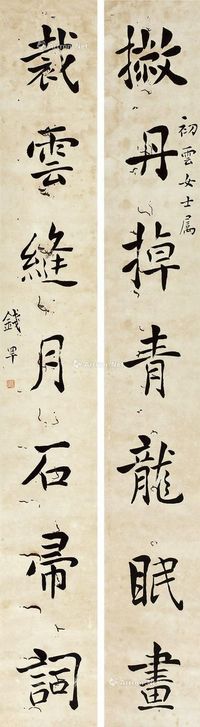 初雲女士属
撇丹掉青龍眠畫
裁雲縫月石帚詞
錢罕